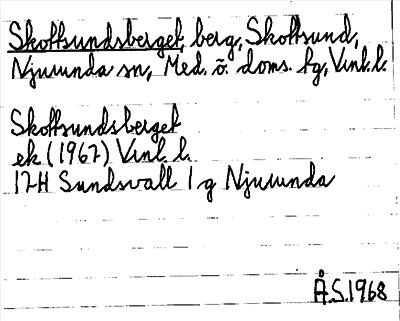 Skottsundsberget, berg, Skottsund,
Njurunda sn, Med. ö. doms. tg, Vnl. l.
Skottsundsberget
ek (1967) Vnl. l.
17H Sundsvall 1 g Njurunda
Å.S. 1968